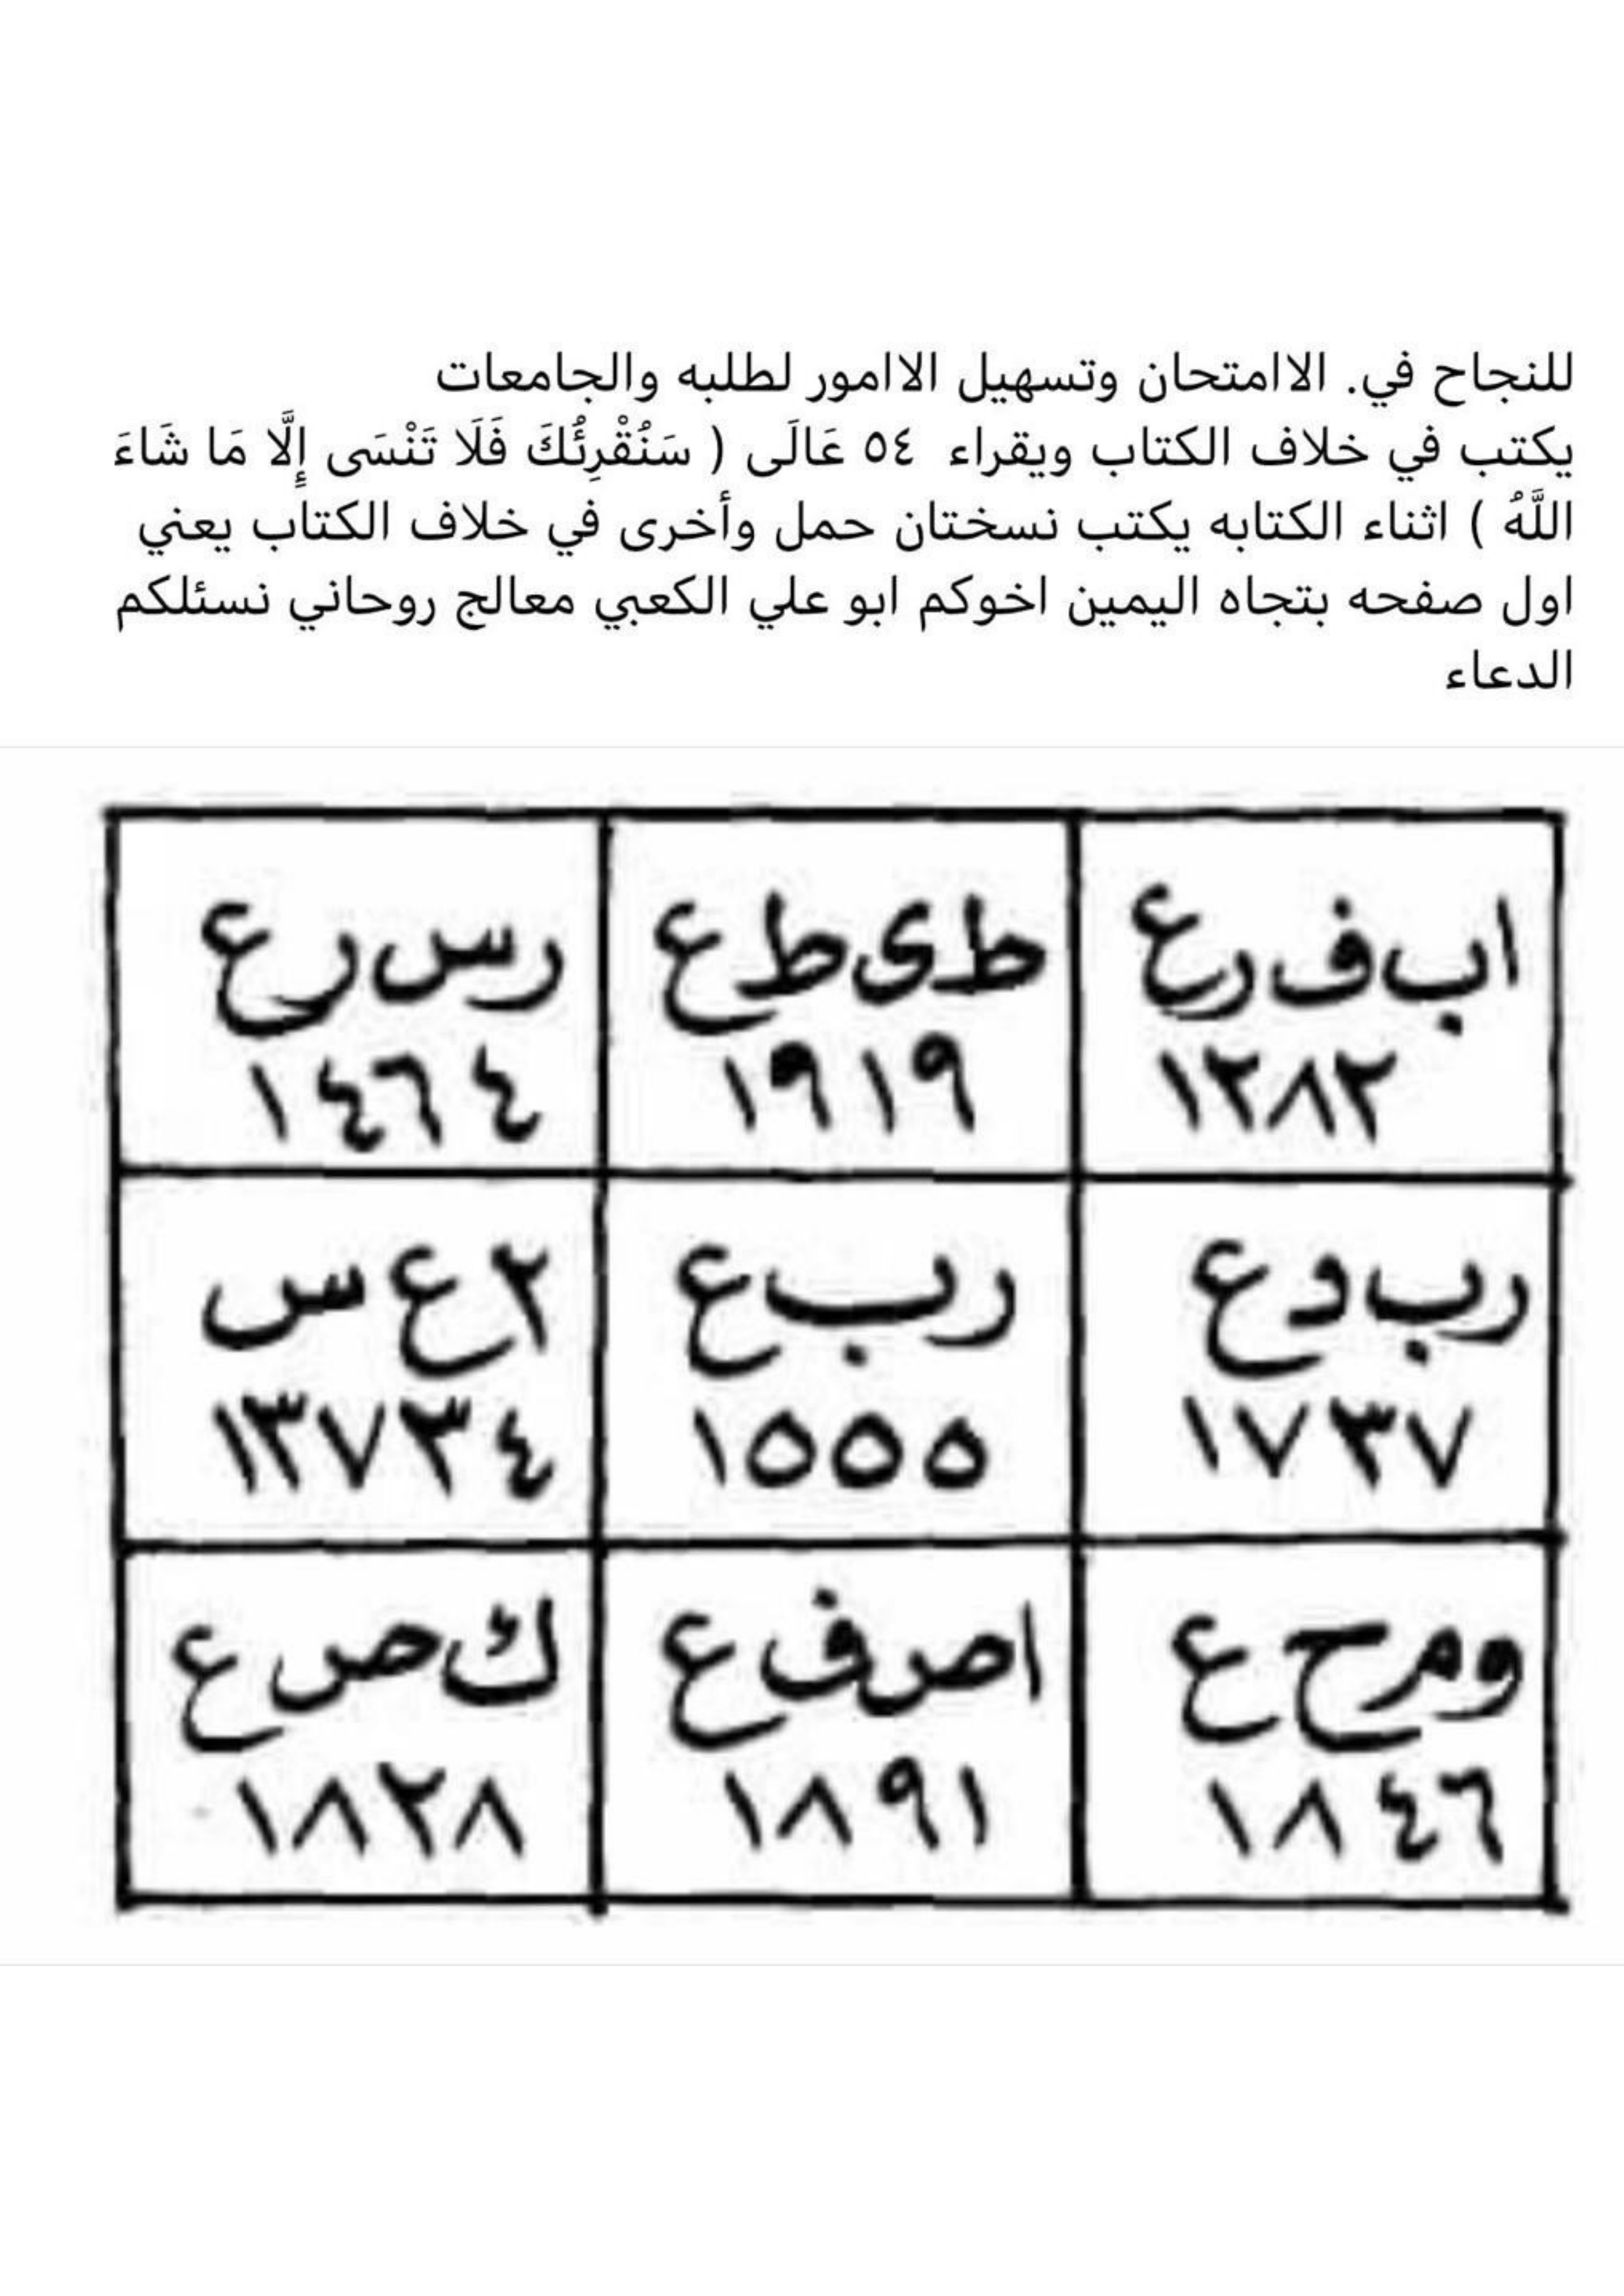 للنجاح في. الاامتحان وتسهيل الاامور لطلبه والجامعات
يكتب في خلاف الكتاب ويقراء ٥٤ عَالَى ( سَنُقْرِئُكَ فَلَا تَنْسَى إِلَّا مَا شَاءَ
اللَّهُ ) اثناء الكتابه يكتب نسختان حمل وأخرى في خلاف الكتاب يعني
اول صفحه بتجاه اليمين اخوكم ابو علي الكعبي معالج روحاني نسئلكم
الدعاء
اب ف رع
١٢٨٢
ط ى ط ع
١٩١٩
رس رع
١٤٦٤
رب دع
١٧٣٧
رب ع
١٥٥٥
٢ ع س
١٣٧٣٤
ومرح ع
١٨٤٦
اصرف ع
١٨٩١
ك ص ع
١٨٢٨